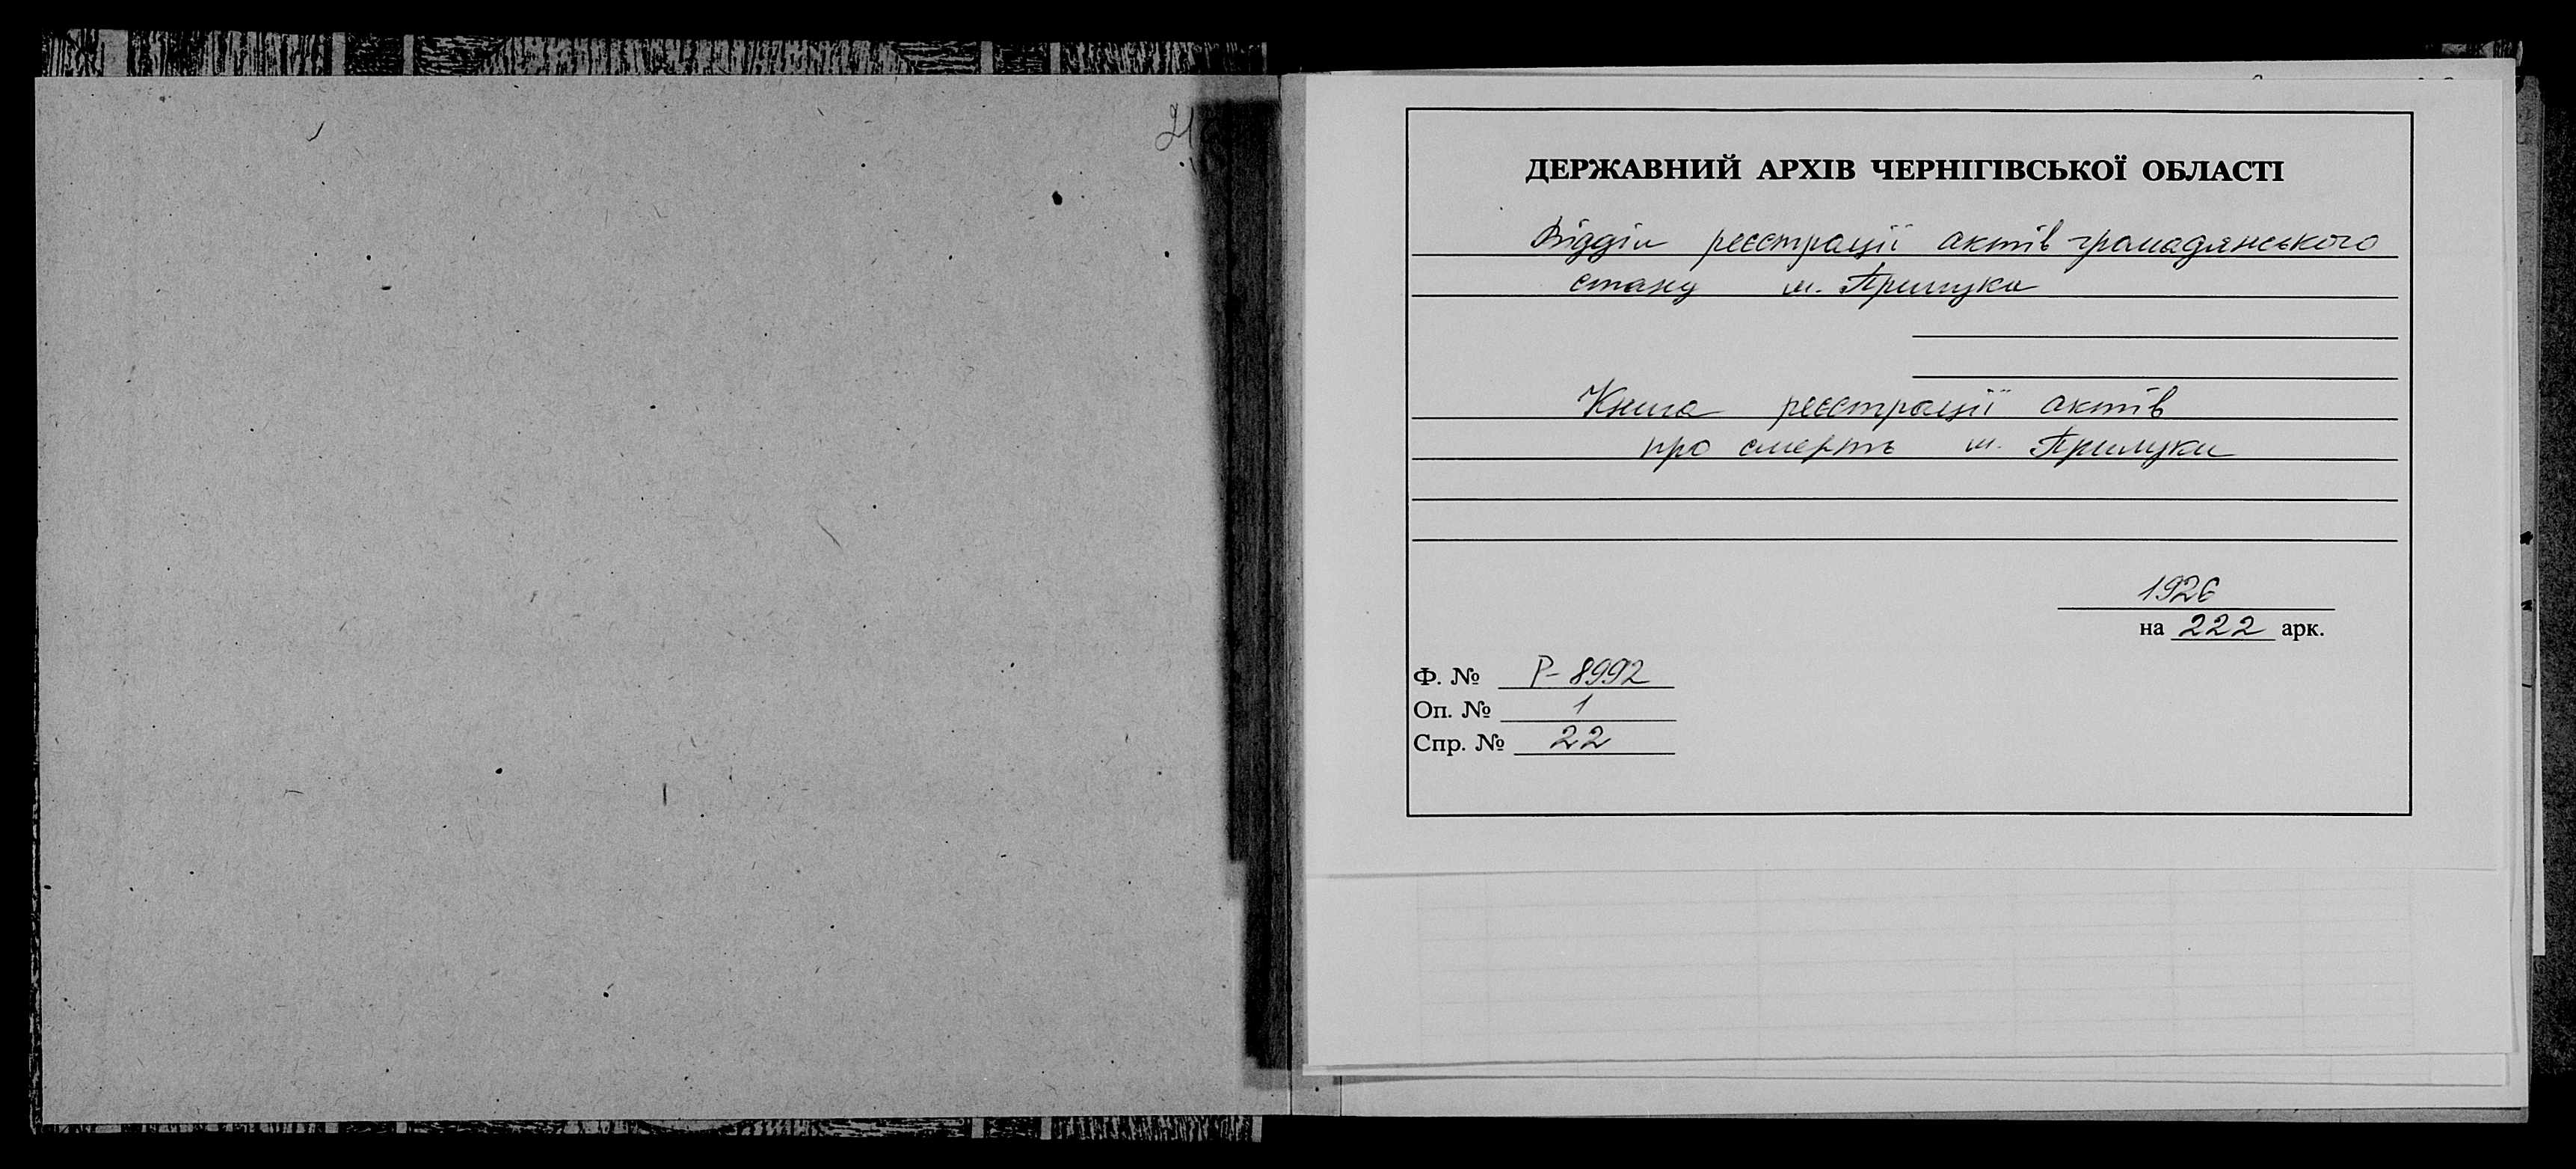 21
ДЕРЖАВНИЙ АРХІВ ЧЕРНІГІВСЬКОЇ ОБЛАСТІ
Відділ реєстрації актів громадянського
стану м. Прилуки
Книга реєстрації актів
про смерть м. Прилуки
1926
на 222 арк.
Ф. № Р-8992
Оп. № 1
Спр. № 22